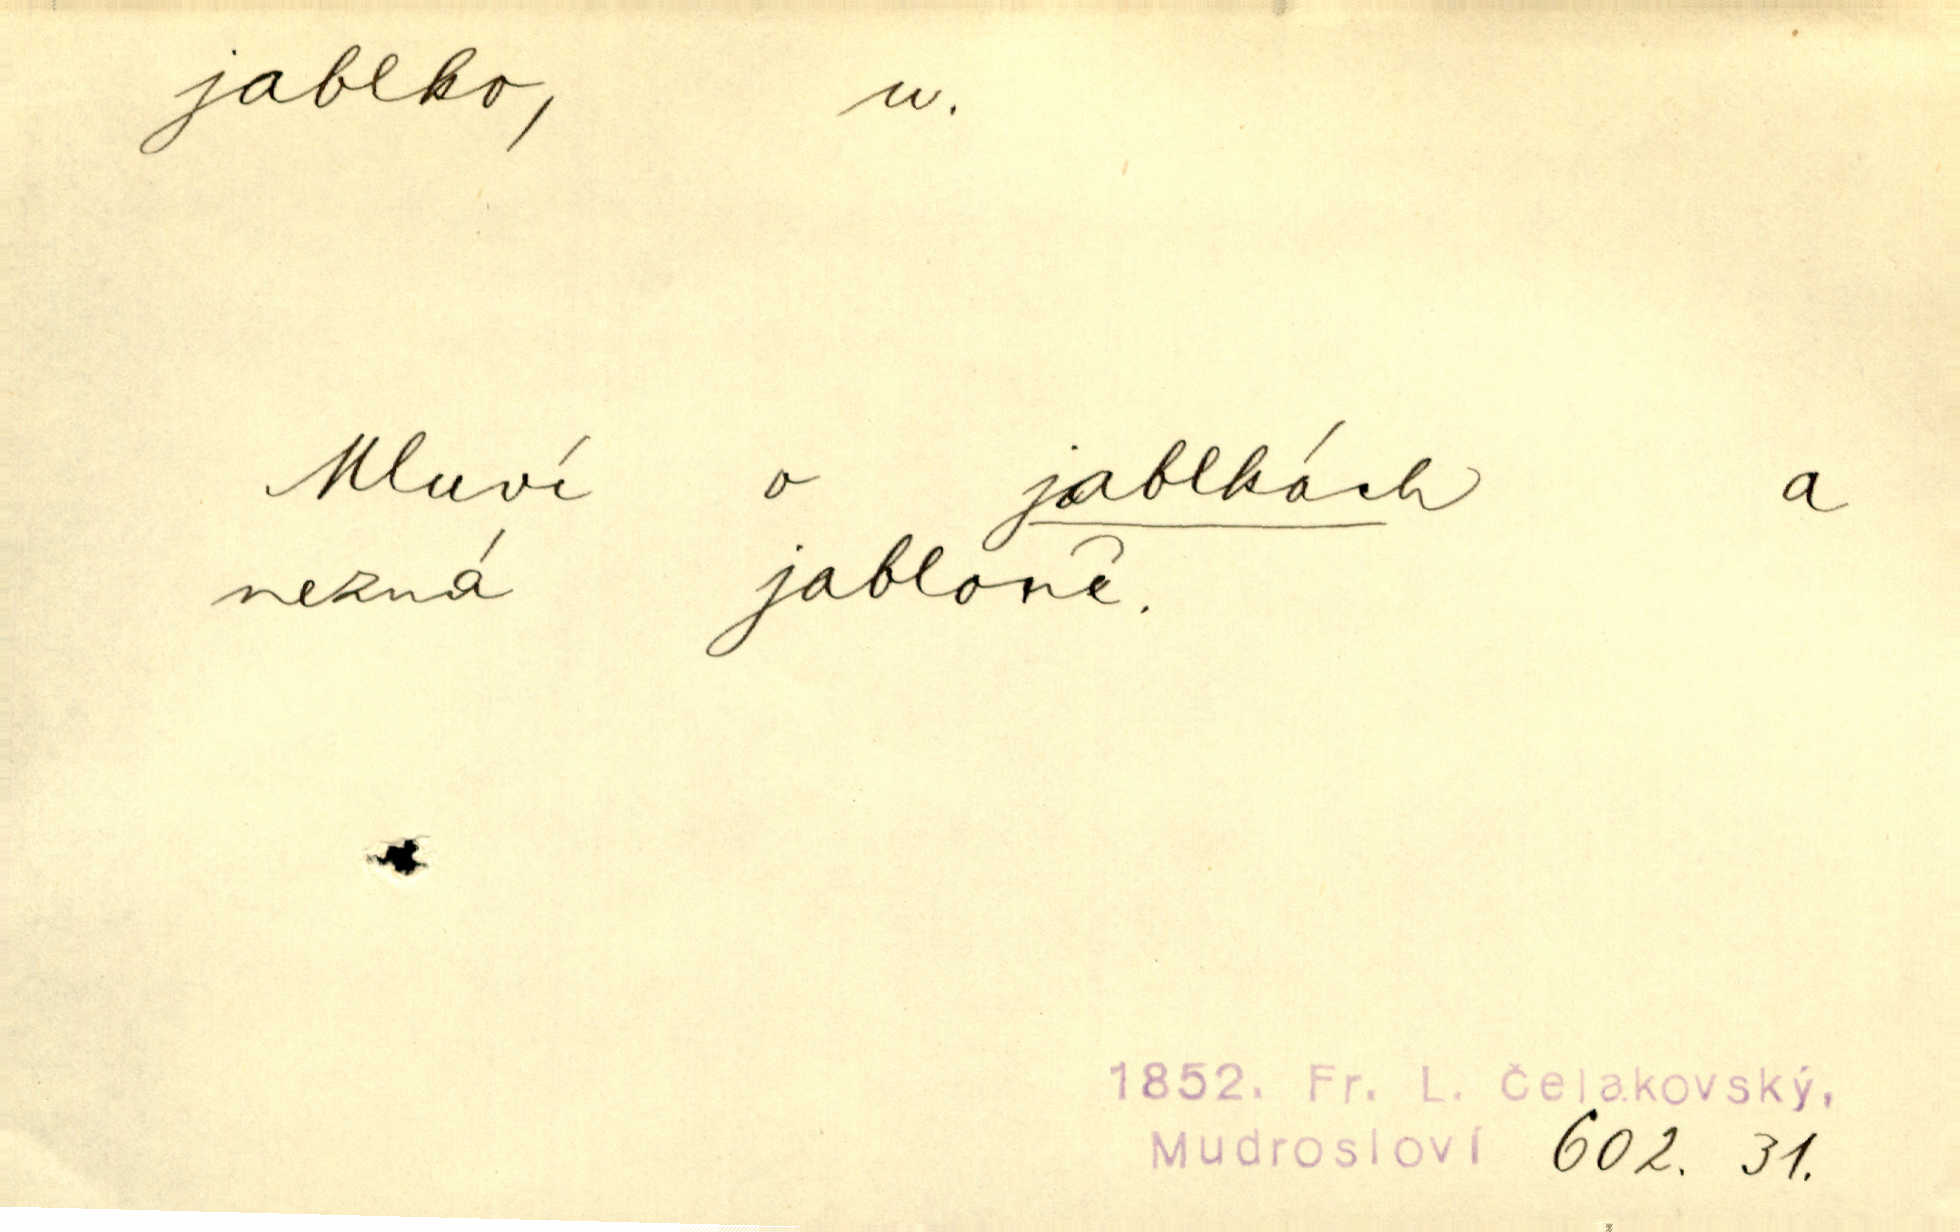 jablko, n.
Mluví o jablkách a
nezná jabloně.
1852. Fr. L. Čelakovský,
Mudrosloví 602. 31.